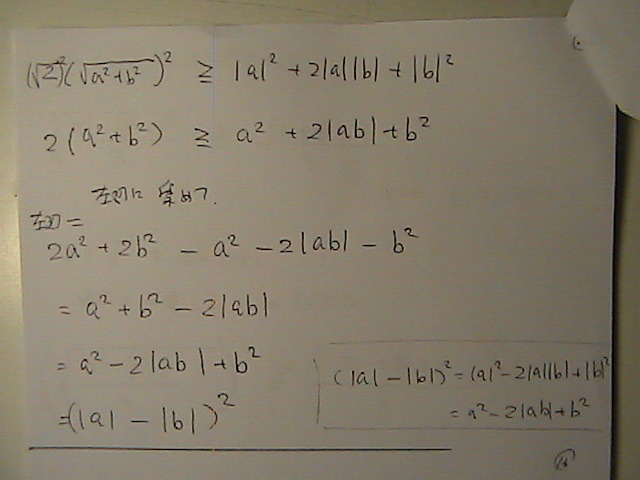 (√2)²(√a²+b²)² ≧ |a|² + 2|a||b| + |b|²
2(a²+b²) ≧ a² + 2|ab| + b²
左辺に集めて.
左辺=
2a² + 2b² - a² - 2|ab| - b²
= a² + b² - 2|ab|
= a² - 2|ab| + b²
=(|a| - |b|)²
(|a| - |b|)² = |a|² - 2|a||b| + |b|²
= a² - 2|ab| + b²